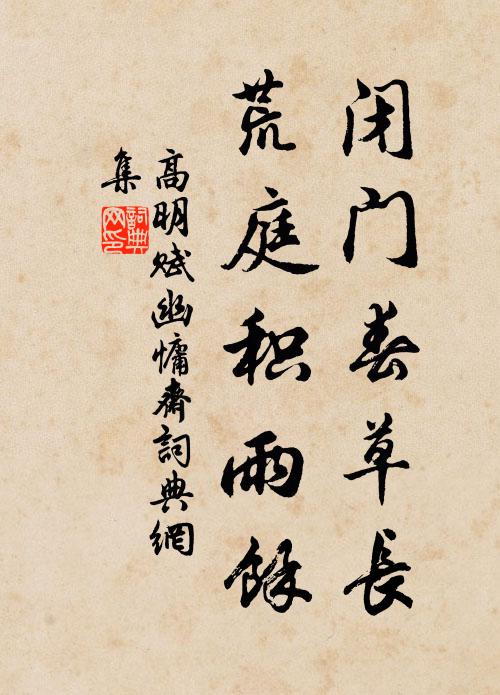 闭门春草长
荒庭积雨馀
高明赋幽慵斋詞典網
集
詞典
网印